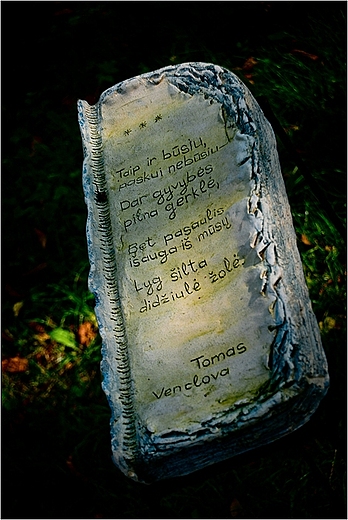 * * *
Taip ir būsiu,
paskui nebūsiu
Dar gyvybės
pilna gerklė,
Bet pasaulis
išauga iš mūsų
Lyg šilta
didžiulė žolė.
Tomas
Venclova